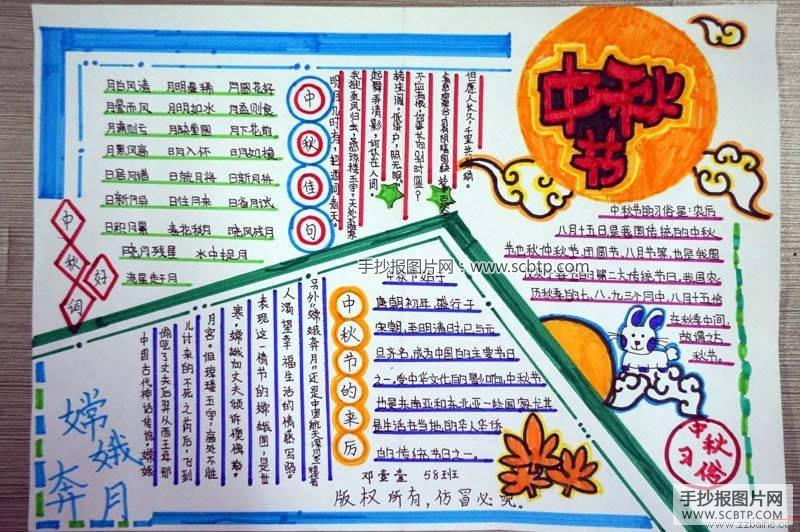 中秋节
月白风清 月明星稀 月圆花好
月晕而风 月明如水 月盈则食
月满则亏 月缺重圆 月下花前
月黑风高 日月入怀 日月如梭
日居月诸 日就月将 日新月将
日新月异 日往月来 日省月试
日积月累 春花秋月 晓风残月
晓月残星 水中捉月
流星赶月
中秋好词
中秋佳句
但愿人长久，千里共
不应有恨，何事长向别时圆？
转朱阁，低绮户，照无眠。
起舞弄清影，何似在人间。
我欲乘风归去，
明月几时有，把酒问青天。
中秋节的习俗是：农历
八月十五日是我国传统的中秋
节也秋仲秋节、团圆节、八月节等，也是我国
第二大传统节日，我国农
历秋季的七、八、九三个月中，八月十五恰
在秋季中间，
故谓之
秋节。
中秋习俗
手抄报图片网：www.scbtp.com
中秋节的来历
中秋节始于
唐朝初年，盛行于
宋朝，至明清时已与元
旦齐名，成为中国的主要节日
之一。受中华文化的影响，中秋节
也是东南亚和东北亚一些国家尤其
是生活在当地的华人华侨
的传统节日之一。
嫦娥奔月
中国古代神话传说，嫦娥
偷吃了丈夫后羿从西王母那
儿讨来的不死之药后，飞到
月宫。但琼楼玉宇，高处不胜
寒，嫦娥向丈夫倾诉懊悔。
表现这一情节的嫦娥图，是世
人渴望幸福生活的情感写照。
另外“嫦娥奔月”还是中国航天
邓壹壹 58班
版权所有，仿冒必究。
手抄报图片网
WWW.SCBTP.COM
www.zzbaine.com